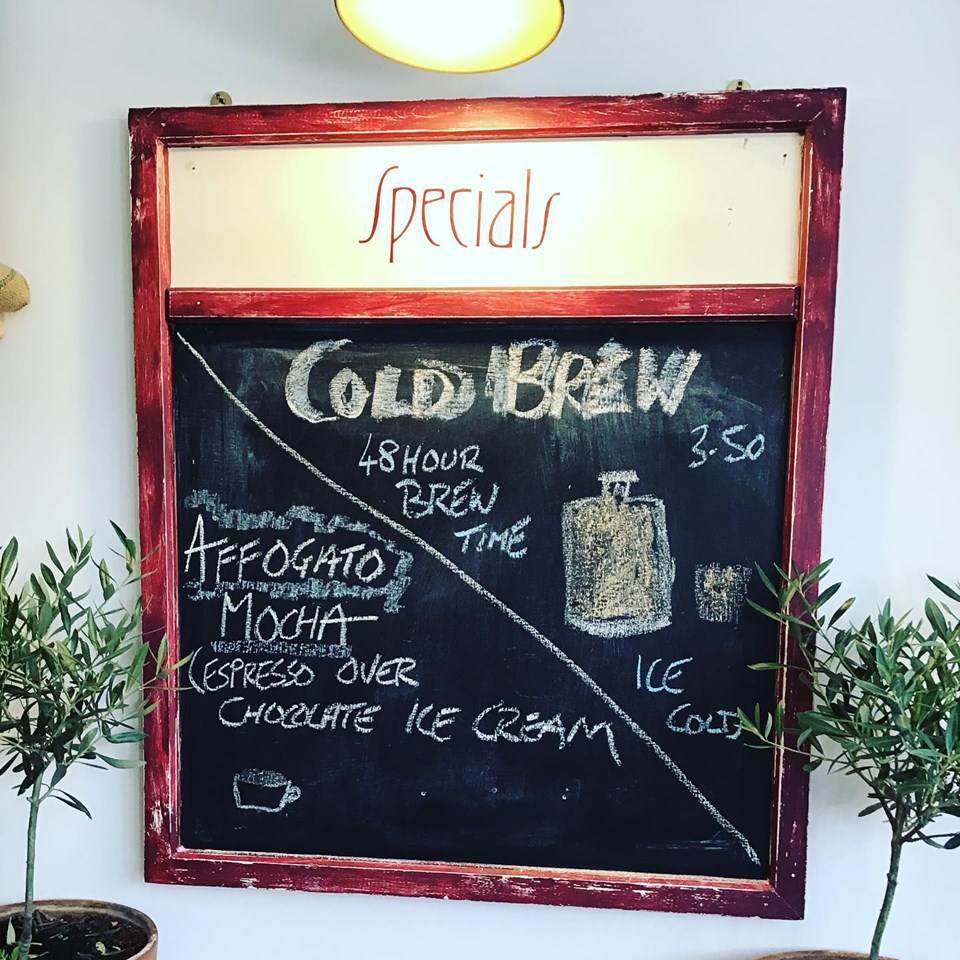 Specials
COLD BREW
3.50
48 HOUR
BREW
TIME
ICE
COLD
AFFOGATO
MOCHA-
(ESPRESSO OVER
CHOCOLATE ICE CREAM)